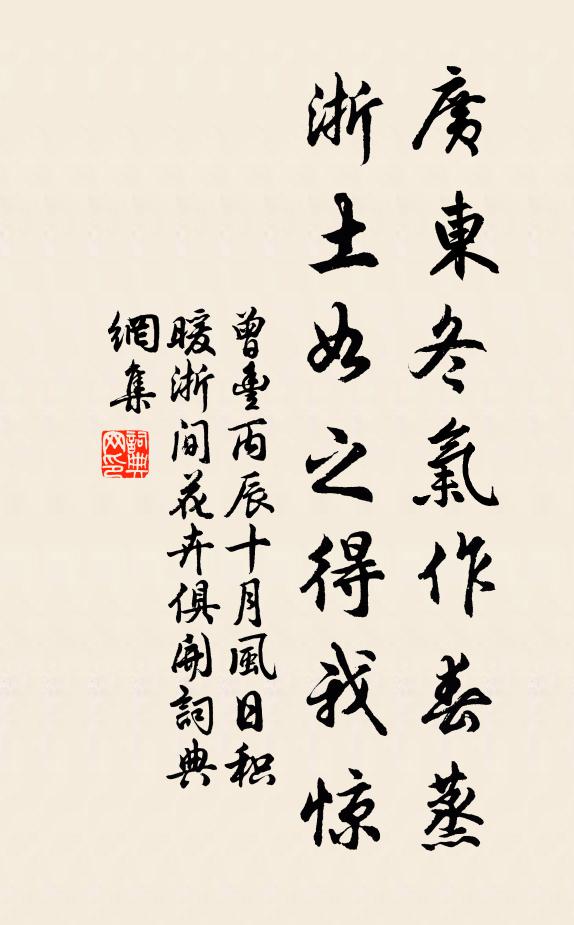 廣東冬氣作春蒸
浙土如之得我惊
曾豊丙辰十月風日积
暖浙间花卉俱開詞典
網集
詞典网印